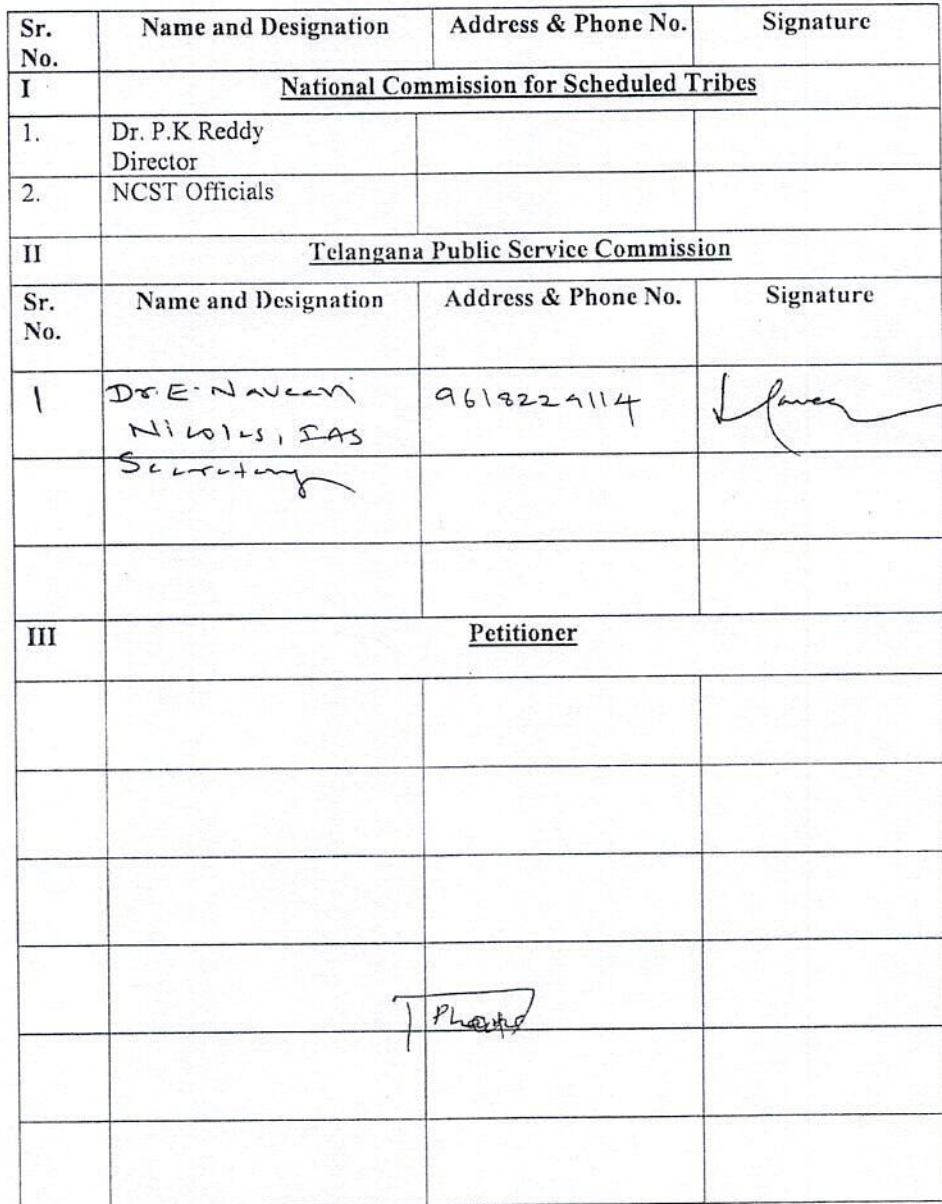 Sr. No. Name and Designation Address & Phone No. Signature
I National Commission for Scheduled Tribes
1. Dr. P.K Reddy
Director
2. NCST Officials
II Telangana Public Service Commission
Sr. No. Name and Designation Address & Phone No. Signature
1 Dr. E. Naveen 9618229114
Nicolas, IAS
Secretary
III Petitioner